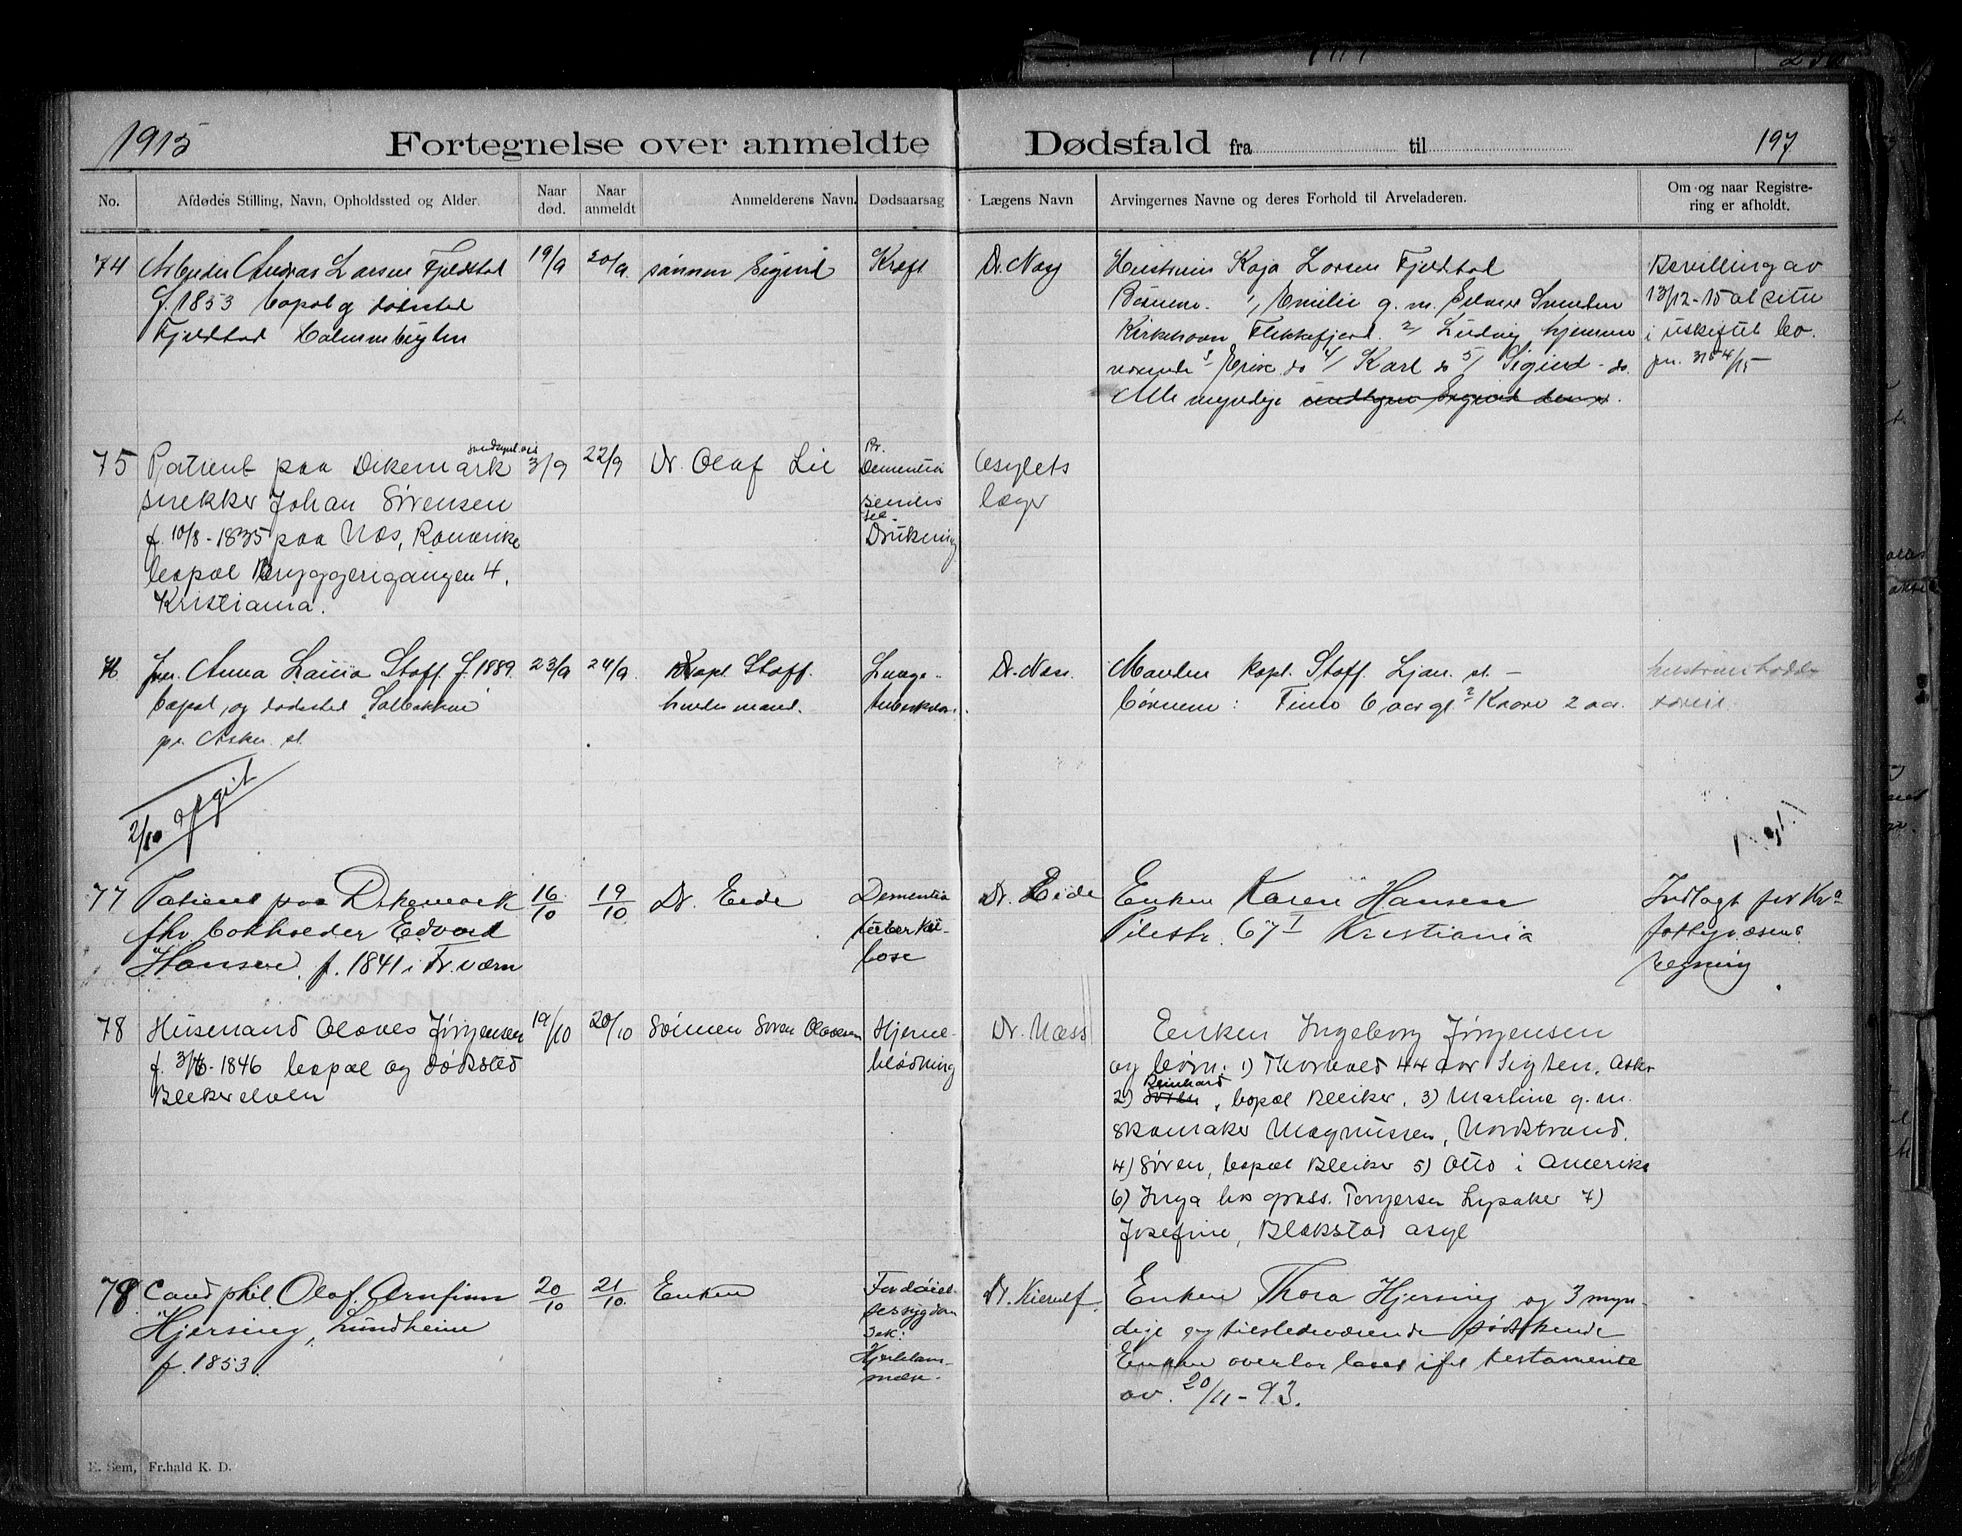 1915
Fortegnelse over anmeldte Dødsfald fra til
197
No.
Afdødes Stilling, Navn, Opholdssted og Alder.
Naar død.
Naar anmeldt
Anmelderens Navn.
Dødsaarsag
Lægens Navn
Arvingernes Navne og deres Forhold til Arveladeren.
Om og naar Registrering er afholdt.
74
Arbeider Andreas Larsen Fjeldstad
f. 1853 bopæl og dødssted
Fjeldstad
19/9
20/9
sønnen Sigurd
Kræft
Hustruen Kaja Larsen Fjeldstad
Børnene. 1/ Emilie g.m.
Kirkehavn Flekkefjord. 2/ Ludvig hjemme
værende 3 do 4/ Karl do 5/ Sigurd - do.
Alle myndige
Bevilling av
13/12-15 at sitte
i uskiftet bo.
75
Patient paa Dikemark
snekker Johan Sørensen
f. 10/8-1835 paa Næs, Romerike
bopæl Bryggerigangen 4,
Kristiania.
3/9
22/9
Dr. Olaf Lie
Pr.
Dementia
senilis
Drukning
Asylets
læger
Fru Anna Laura Staff f. 1889
bopæl og dødssted Solbakken
pr. Asker st.
23/9
24/9
Kapt. Staff.
hendes mand.
Lunge-
Dr. Næss.
Manden kapt. Staff. Ljan st. -
børnene: 6 aar og 2 Kaare 2 aar
2/10 opgit
77
Patient paa Dikemark
fhv bokholder Edvard
Hansen, f. 1841 i Fr.værn
16/10
19/10
Dr. Eide
Dementia
tuberku-
lose
Dr. Eide
Enken Karen Hansen
Pilestr. 67 I Kristiania
Indlagt for Kra
fattigvæsens
regning
78
Husmand Olaves Jørgensen
1846 bopæl og dødssted
Blekerelven
19/10
20/10
Sønnen Søren Olavesen
Hjerne-
blødning
Dr. Næss
Enken Ingeborg Jørgensen
og børn: 1) Thorvald 44 aar Sigten, Asker
2) Reinhard Søren, bopæl Bleiker, 3) Martine g.m.
skomaker Magnussen, Nordstrand.
4) Søren, bopæl Bleiker 5) Otto i Amerika
6) Inga hos gross. Torgersen Lysaker 7)
Josefine, Blakstad asyl
78
Cand phil. Olaf Arnfinn
Hjersing, Lundheim
f. 1853.
20/10
21/10.
Enken
Fordøiel-
sessygdom
Hjertelam-
melse.
Dr. Kierulf
Enken Thora Hjersing og 3 myn-
dige og tilstedeværende søskende
Enken overtar boet ifl testamente
av 20/11-93.
E. Sem, Fr.hald K. D.